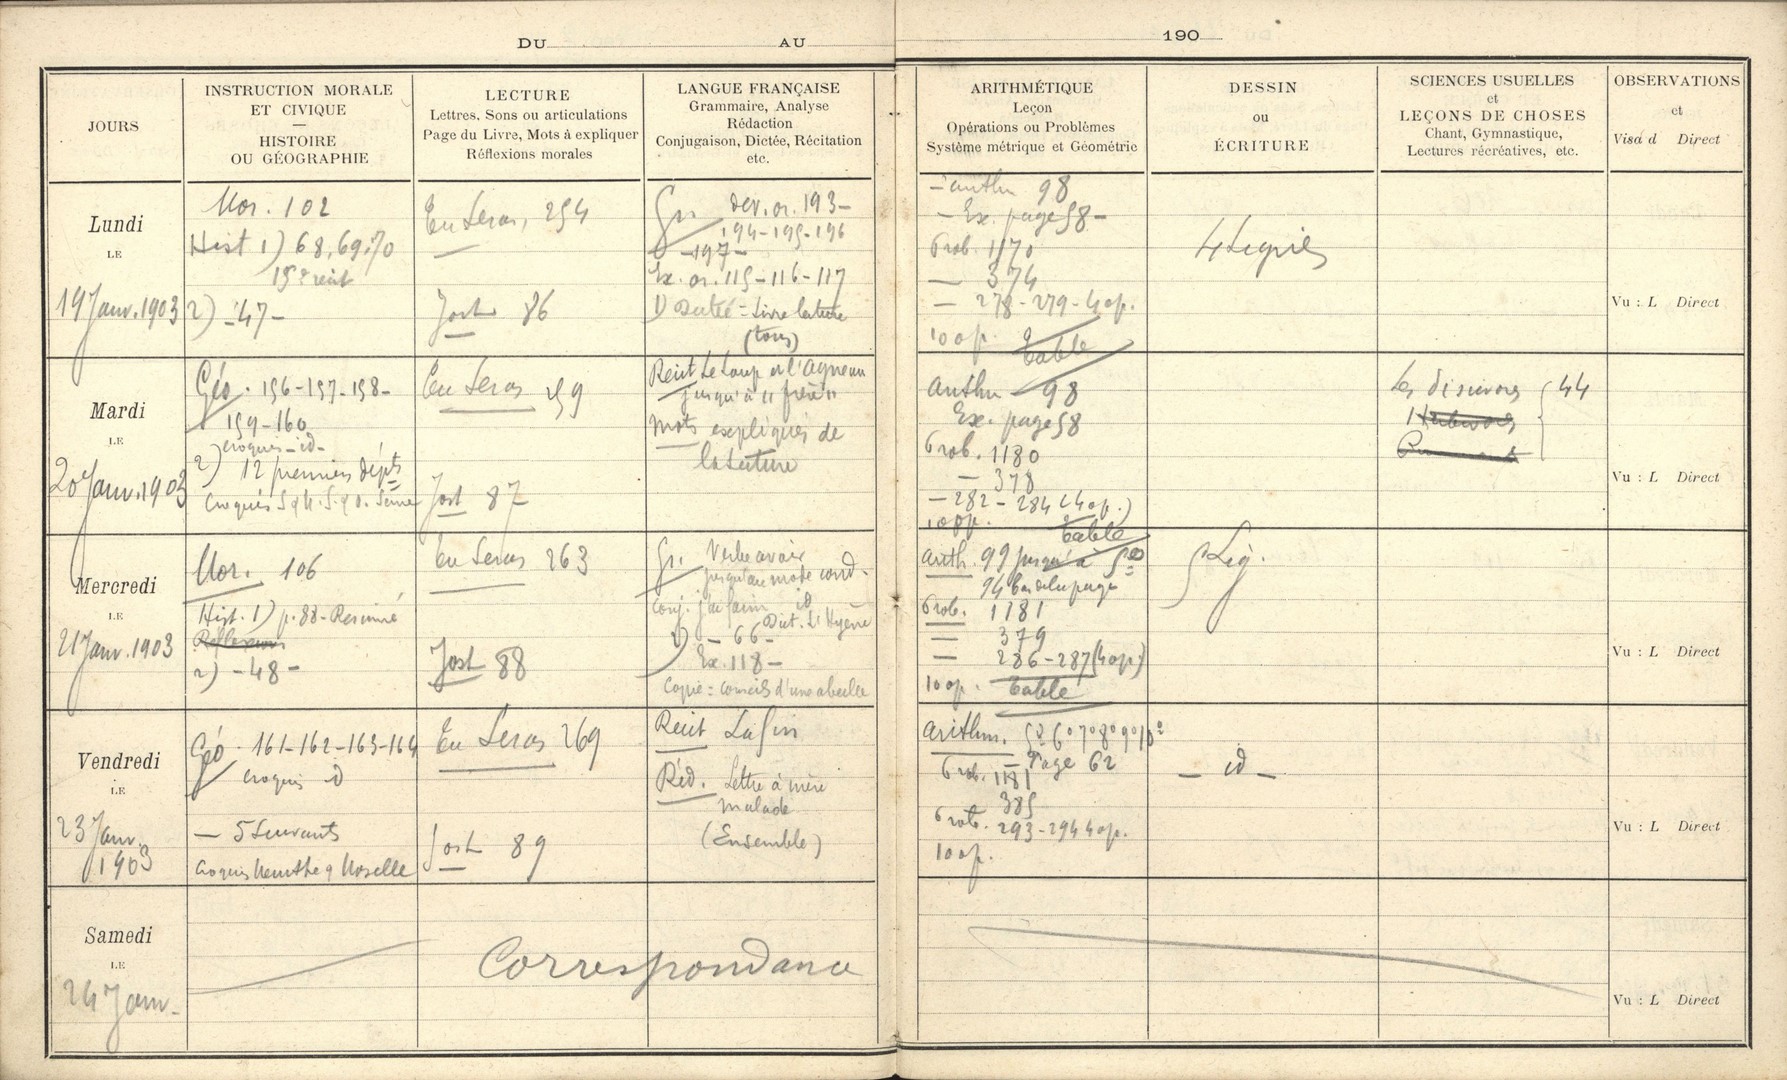 DU AU 190
JOURS
INSTRUCTION MORALE
ET CIVIQUE
—
HISTOIRE
OU GÉOGRAPHIE
LECTURE
Lettres, Sons ou articulations
Page du Livre, Mots à expliquer
Réflexions morales
LANGUE FRANÇAISE
Grammaire, Analyse
Rédaction
Conjugaison, Dictée, Récitation
etc.
ARITHMÉTIQUE
Leçon
Opérations ou Problèmes
Système métrique et Géométrie
DESSIN
ou
ÉCRITURE
SCIENCES USUELLES
et
LEÇONS DE CHOSES
Chant, Gymnastique,
Lectures récréatives, etc.
OBSERVATIONS
et
Visa d Direct
Lundi
LE
19 Janv. 1903
Mor. 102
Hist 1) 68, 69, 70
15e récit
2) - 47 -
En Seras, 254
Jost 86
Gr. dev. or. 193 -
194 - 195 - 196
- 197 -
Ex. or. 115 - 116 - 117
1) Dictée = Livre lecture
(tous)
- arithm 98
- Ex. page 58 -
Prob. 1170
— 374
— 278 - 279 - 4 op.
10 op. Table
4 Lignes
Vu : L Direct
Mardi
LE
20 Janv. 1903
Géo. 156 - 157 - 158 -
159 - 160
croquis - id -
2) 12 premiers dépts
Croquis S et M. S. et O. Seine
En Seras 259
Jost 87
Récit Le Loup et l'Agneau
jusqu'à "frère"
Mots expliqués de
la Lecture
Arithm 98
Ex. page 58
Prob. 1180
— 378
— 282 - 284 (4 op.)
10 op. Table
Les 44
Vu : L Direct
Mercredi
LE
21 Janv. 1903
Mor. 106
Hist. 1) p. 88 - Résumé
Réflexions
2) - 48 -
En Seras 263
Jost 88
Gr. Verbe avoir
jusqu'au mode cond.
Conj. j'ai faim id
Dict. L'Hyène
2) - 66 -
Ex. 118 -
Copie = Conseils d'une abeille
Arith. 99 jusqu'à 5°
94 bas de la page
Prob. 1181
— 379
— 286 - 287 (4 op.)
10 op. Table
5 Lig.
Vu : L Direct
Vendredi
LE
23 Janv.
1903
Géo. 161 - 162 - 163 - 164
croquis id
— 5 Suivants
Croquis Meurthe et Moselle
En Seras 269
Jost 89
Récit La fin
Réd. Lettre à mère
malade
(Ensemble)
Arithm. 5° 6° 7° 8° 9° 10°
- Page 62
Prob. 1181
385
Prob. 293 - 294 4 op.
10 op.
— id —
Vu : L Direct
Samedi
LE
24 Janv.
Correspondance
Vu : L Direct